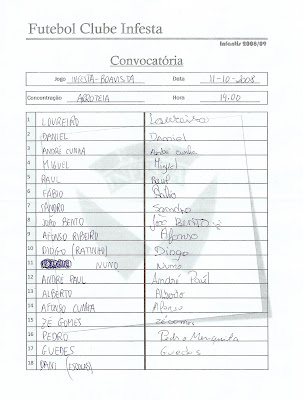 Futebol Clube Infesta
Infantis 2008/09
Convocatória
Jogo INFESTA-BOAVISTA Data 11-10-2008
Concentração ARROTEIA Hora 14.00
1 LOUREIRO Loureiro
2 DANIEL Daniel
3 ANDRÉ CUNHA André Cunha
4 MIGUEL Miguel
5 RAUL Raul
6 FÁBIO Fábio
7 SANDRO Sandro
8 JOÃO BENTO João BENTO
9 AFONSO RIBEIRO Afonso
10 DIOGO (RATINHO) Diogo
11 NUNO Nuno
12 ANDRÉ PAUL André Paul
13 ALBERTO Alberto
14 AFONSO CUNHA Afonso
15 ZÉ GOMES Zé Gomes
16 PEDRO Pedro Mesquita
17 GUEDES Guedes
18 DANI